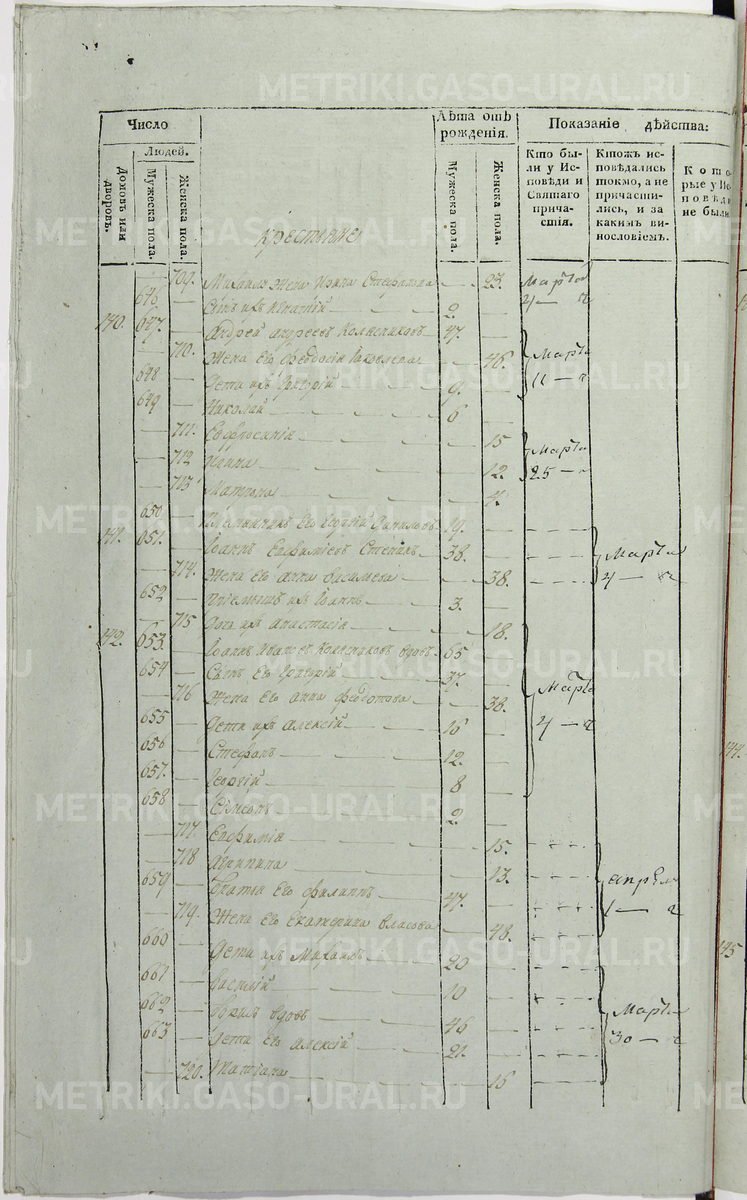 METRIKI.GASO-URAL.RU
Число
Лѣта отъ рожденія.
Показаніе дѣйства:
Домовъ или дворовъ.
Людей.
Мужеска пола.
Женска пола.
Мужеска пола.
Женска пола.
Кто были у Исповѣди и Святаго причастія.
Ктожъ исповѣдались токмо, а не причастились, и за какимъ винословіемъ.
Которые у Исповѣди не были
Крестьяне
709. Михаила жена Ирина 23. Марта
646. Сынъ ихъ Игнатій 2. 4 — ч
140. 647. Андрей Андреевъ Колясниковъ 47.
710. Жена его Феодосія Иаковлева 46. Марта
648 Дети ихъ Григорій 9. 11 — ч
649 Николай 6
711. Евфросинія 15
712 Ирина 12. Марта
713 Матрона 4. 25 — ч
650 его Даниловъ 19.
141. 651. Іоаннъ Евфиміевъ 38. Марта
714. Жена его Анна Васильева 38. 4 — ч
652 ихъ Іоаннъ 3.
715 Дочь ихъ Анастасія 18.
142. 653. Іоаннъ Ивановъ Колясниковъ вдовъ 65
654 Сынъ его Григорій 37.
716 Жена его Анна Феодотова 38. Марта
655 Дети ихъ Алексій 16 4 — ч
656 Стефанъ 12.
657. Георгій 8
658 Симеонъ 2.
717. Евфимія 15.
718 Агрипина 13.
659 Братъ его Филиппъ 47. Апреля
719. Жена его Екатерина Власова 48. 1 — ч
660 Дети ихъ Михаилъ 20
661 Василій 10
662 вдовъ 46 Марта
663 Дети его Алексій 21. 30 — ч
720. Татіана 16
144.
145